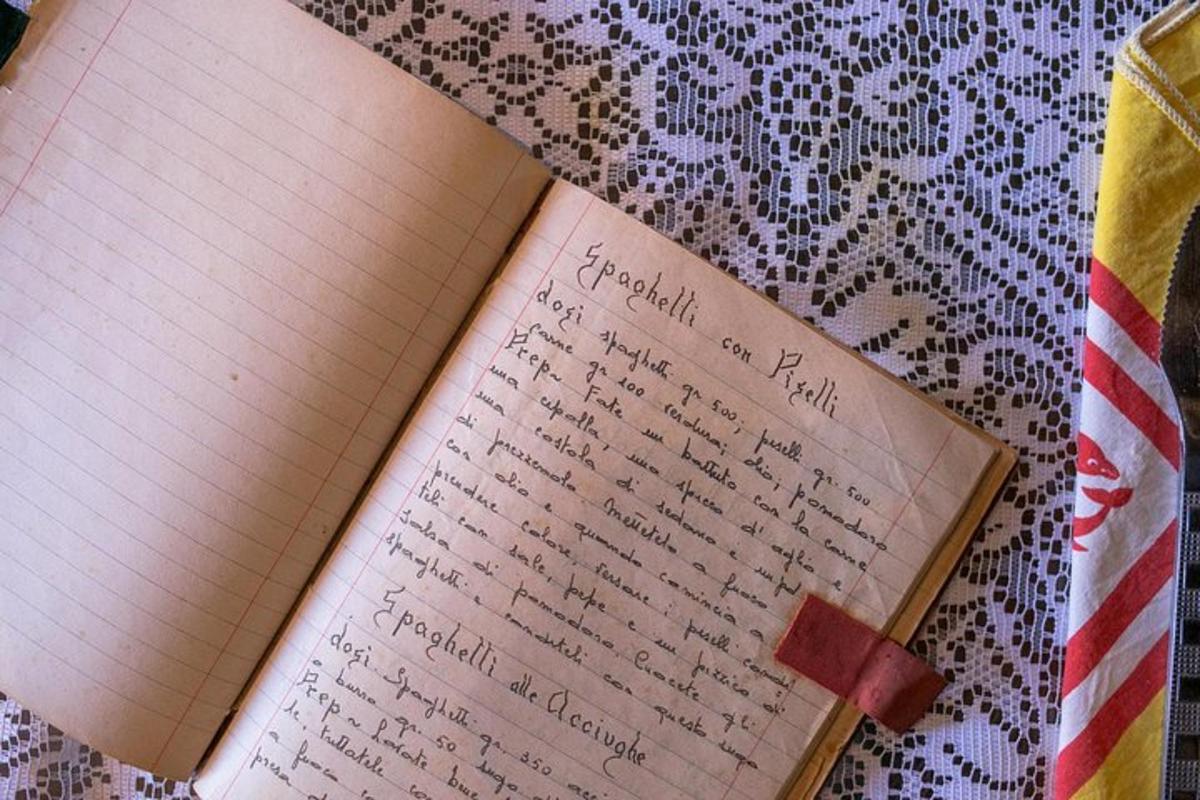 Spaghetti con Piselli
dosi spaghetti gr. 500; piselli gr. 500
carne gr. 100 verdura; olio; pomodoro
Prep~ Fate un battuto con la carne
una cipolla, uno spicco d'aglio e
una costola di sedano e un po'
di prezzemolo. Mettetelo a fuoco
con olio e quando comincia a
prendere colore, versare i piselli condi
teli con sale, pepe e un pizzico di
salsa di pomodoro. Cuocete gli
spaghetti e conditeli con questo sugo
Spaghetti alle Acciughe
dosi Spaghetti gr. 350 acci
burro gr. 50 sugo di
Prep~ Lavate bene
le, tuttatele
a fuoco con
presa di